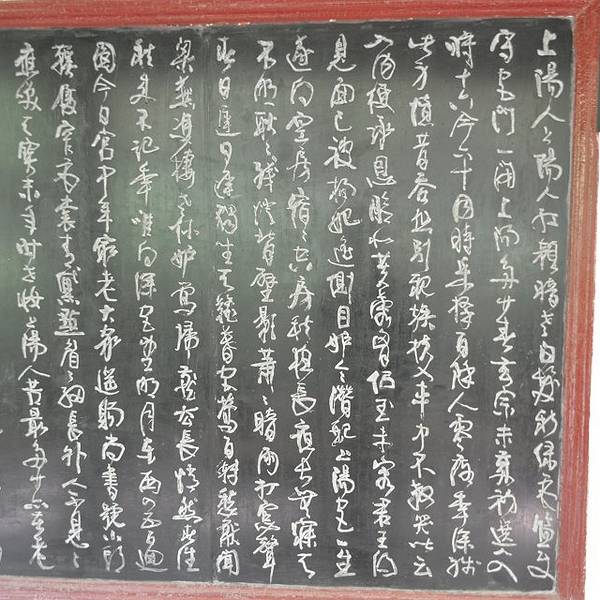 上陽人々陽人紅顏暗老白髮新綠衣監使
守宮門一閉上陽多少春玄宗末歲初選入入
時十六今六十同時采擇百餘人零落年深殘
此身憶昔吞悲別親族扶入車中不教哭皆云
入內便承恩臉似芙蓉胸似玉未容君王得
見面已被楊妃遙側目妒令潛配上陽宮一生
遂向空房宿々空房秋夜長夜長無寐天
不明耿々殘燈背壁影蕭々暗雨打窗聲
春日遲日遲獨坐天難暮宮鶯百囀愁厭聞
梁燕雙棲老休妒鶯歸燕去長悄然春往
秋來不記年唯向深宮望明月東西四五百迴
圓今日宮中年最老大家遙賜尚書號小頭
鞋履窄衣裳青黛點眉々細長外人不見々
應笑天寶末年時世妝上陽人苦最多少亦苦老